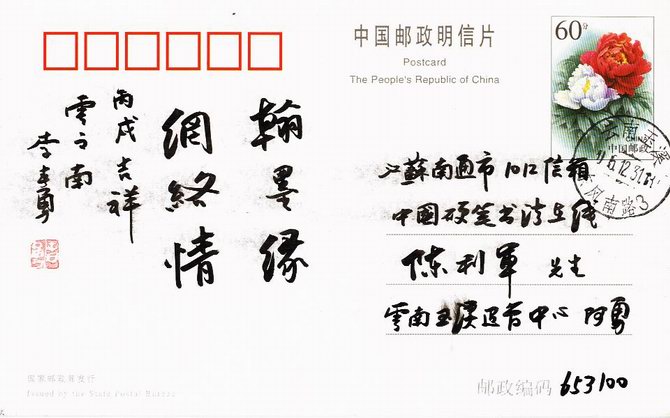 60分
中国邮政明信片
Postcard
The People's Republic of China
中国邮政
云南玉溪
南路3
翰墨缘
網絡情
丙戌吉祥
雲之南
李春勇
江蘇南通市1012信箱
中國硬笔书法在线
陈利軍 先生
雲南玉溪迎春中心 阿勇
国家邮政局发行
Issued by the State Postal Bureau
邮政编码 653100